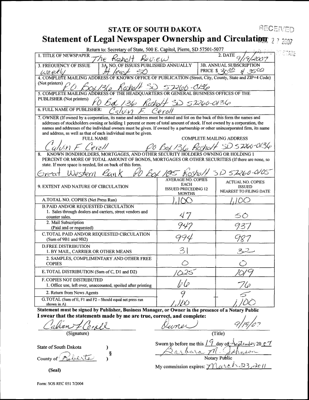 RECEIVED
STATE OF SOUTH DAKOTA
Statement of Legal Newspaper Ownership and Circulation
Return to: Secretary of State, 500 E. Capitol, Pierre, SD 57501-5077
1. TITLE OF NEWSPAPER The Rosholt Review
2. DATE 9/19/2007
3. FREQUENCY OF ISSUE weekly
3A. NO. OF ISSUES PUBLISHED ANNUALLY At least 50
3B. ANNUAL SUBSCRIPTION PRICE $
4. COMPLETE MAILING ADDRESS OF KNOWN OFFICE OF PUBLICATION (Street, City, County, State and ZIP+4 Code) (Not printers)
PO Box 136 Rosholt SD 57260-0136
5. COMPLETE MAILING ADDRESS OF THE HEADQUARTERS OR GENERAL BUSINESS OFFICES OF THE PUBLISHER (Not printers)
PO Box 136 Rosholt SD 57260-0136
6. FULL NAME OF PUBLISHER: Calvin F. Ceroll
7. OWNER (If owned by a corporation, its name and address must be stated and list on the back of this form the names and addresses of stockholders owning or holding 1 percent or more of total amount of stock. If not owned by a corporation, the names and addresses of the individual owners must be given. If owned by a partnership or other unincorporated firm, its name and address, as well as that of each individual must be given.
FULL NAME COMPLETE MAILING ADDRESS
Calvin F. Ceroll PO Box 136 Rosholt SD 57260-0136
8. KNOWN BONDHOLDERS, MORTGAGES, AND OTHER SECURITY HOLDERS OWNING OR HOLDING 1 PERCENT OR MORE OF TOTAL AMOUNT OF BONDS, MORTGAGES OR OTHER SECURITIES (If there are none, so state. If more space is needed, list on back of this form.
Great Western Bank PO Box 105 Rosholt SD 57260-0105
9. EXTENT AND NATURE OF CIRCULATION
AVERAGE NO. COPIES EACH ISSUED PRECEDING 12 MONTHS
ACTUAL NO. COPIES ISSUED NEAREST TO FILING DATE
A. TOTAL NO. COPIES (Net Press Run) 1,100 1,100
B. PAID AND/OR REQUESTED CIRCULATION
1. Sales through dealers and carriers, street vendors and counter sales. 47 50
2. Mail Subscription (Paid and or requested) 947 937
C. TOTAL PAID AND/OR REQUESTED CIRCULATION (Sum of 9B1 and 9B2) 994 987
D. FREE DISTRIBUTION
1. BY MAIL, CARRIER OR OTHER MEANS 31 32
2. SAMPLES, COMPLIMENTARY AND OTHER FREE COPIES 0 0
E. TOTAL DISTRIBUTION (Sum of C, D1 and D2) 1025 1019
F. COPIES NOT DISTRIBUTED
1. Office use, left over, unaccounted, spoiled after printing 66 76
2. Return from News Agents 9 5
G. TOTAL (Sum of E, F1 and F2 - Should equal net press run shown in A) 1,100 1,100
Statement must be signed by Publisher, Business Manager, or Owner in the presence of a Notary Public
I swear that the statements made by me are true, correct, and complete:
Calvin F Ceroll Owner 9/19/07
(Signature) (Title)
State of South Dakota )
) §
County of Roberts )
Sworn to before me this 19 day of September 2007
Barbara M. Johnson
Notary Public
(Seal)
My commission expires: March 23, 2011
Form: SOS REC 051 7/2004